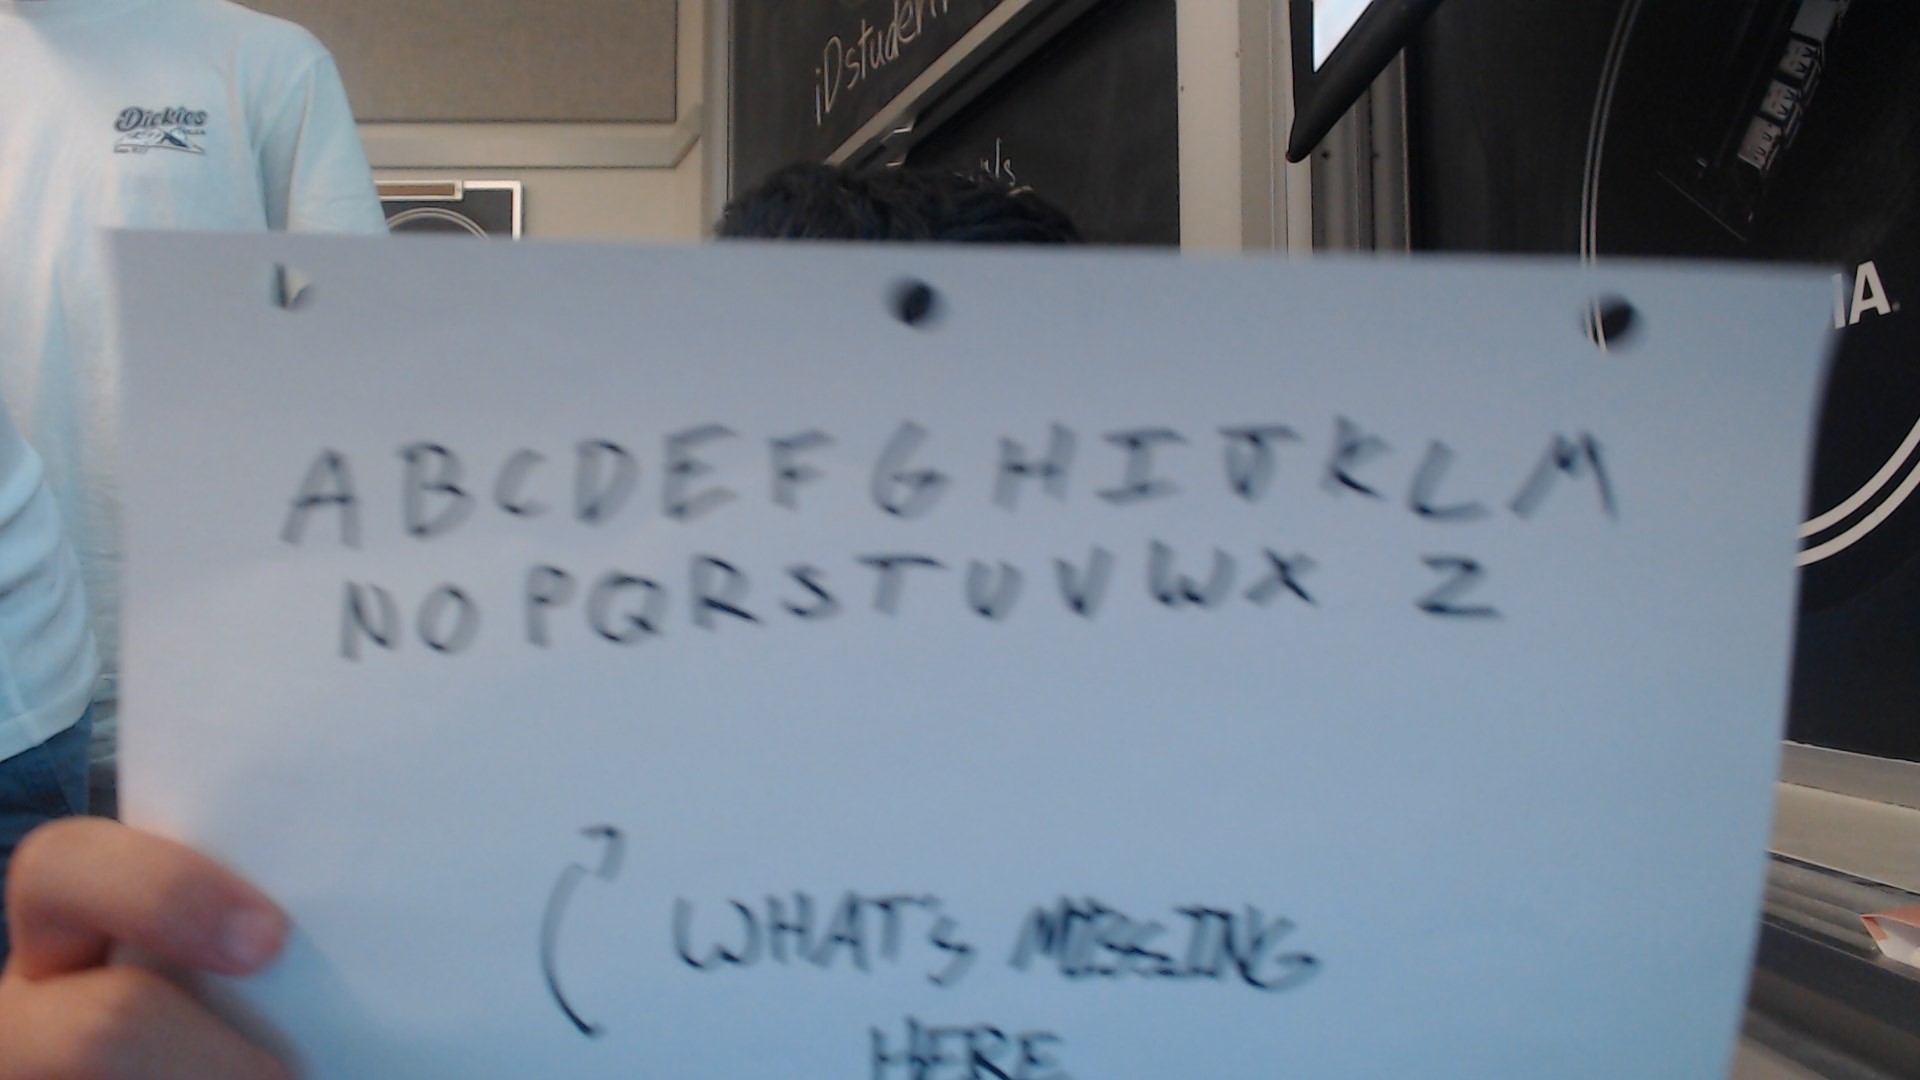 Dickies
iDstuden
IA
A B C D E F G H I J K L M
N O P Q R S T U V W X Z
WHAT'S MISSING
HERE